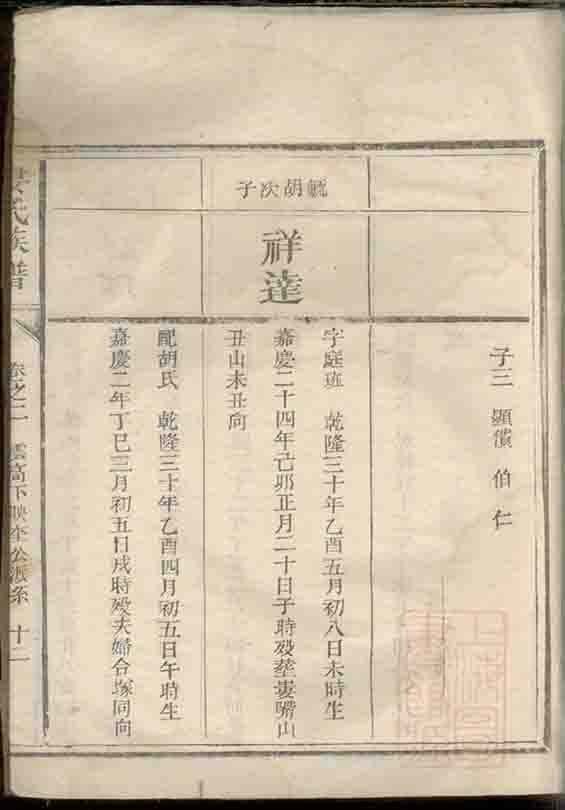 子三 顯 伯仁
毓胡次子
祥達
字庭班 乾隆三十年乙酉五月初八日未時生
嘉慶二十四年己卯正月二十日子時殁塟婁嘴山
丑山未丑向
配胡氏 乾隆三十年乙酉四月初五日午時生
嘉慶二年丁巳三月初五日戌時殁夫婦合塚同向
氏族譜
卷之二 雲高下映奎公派系 十二